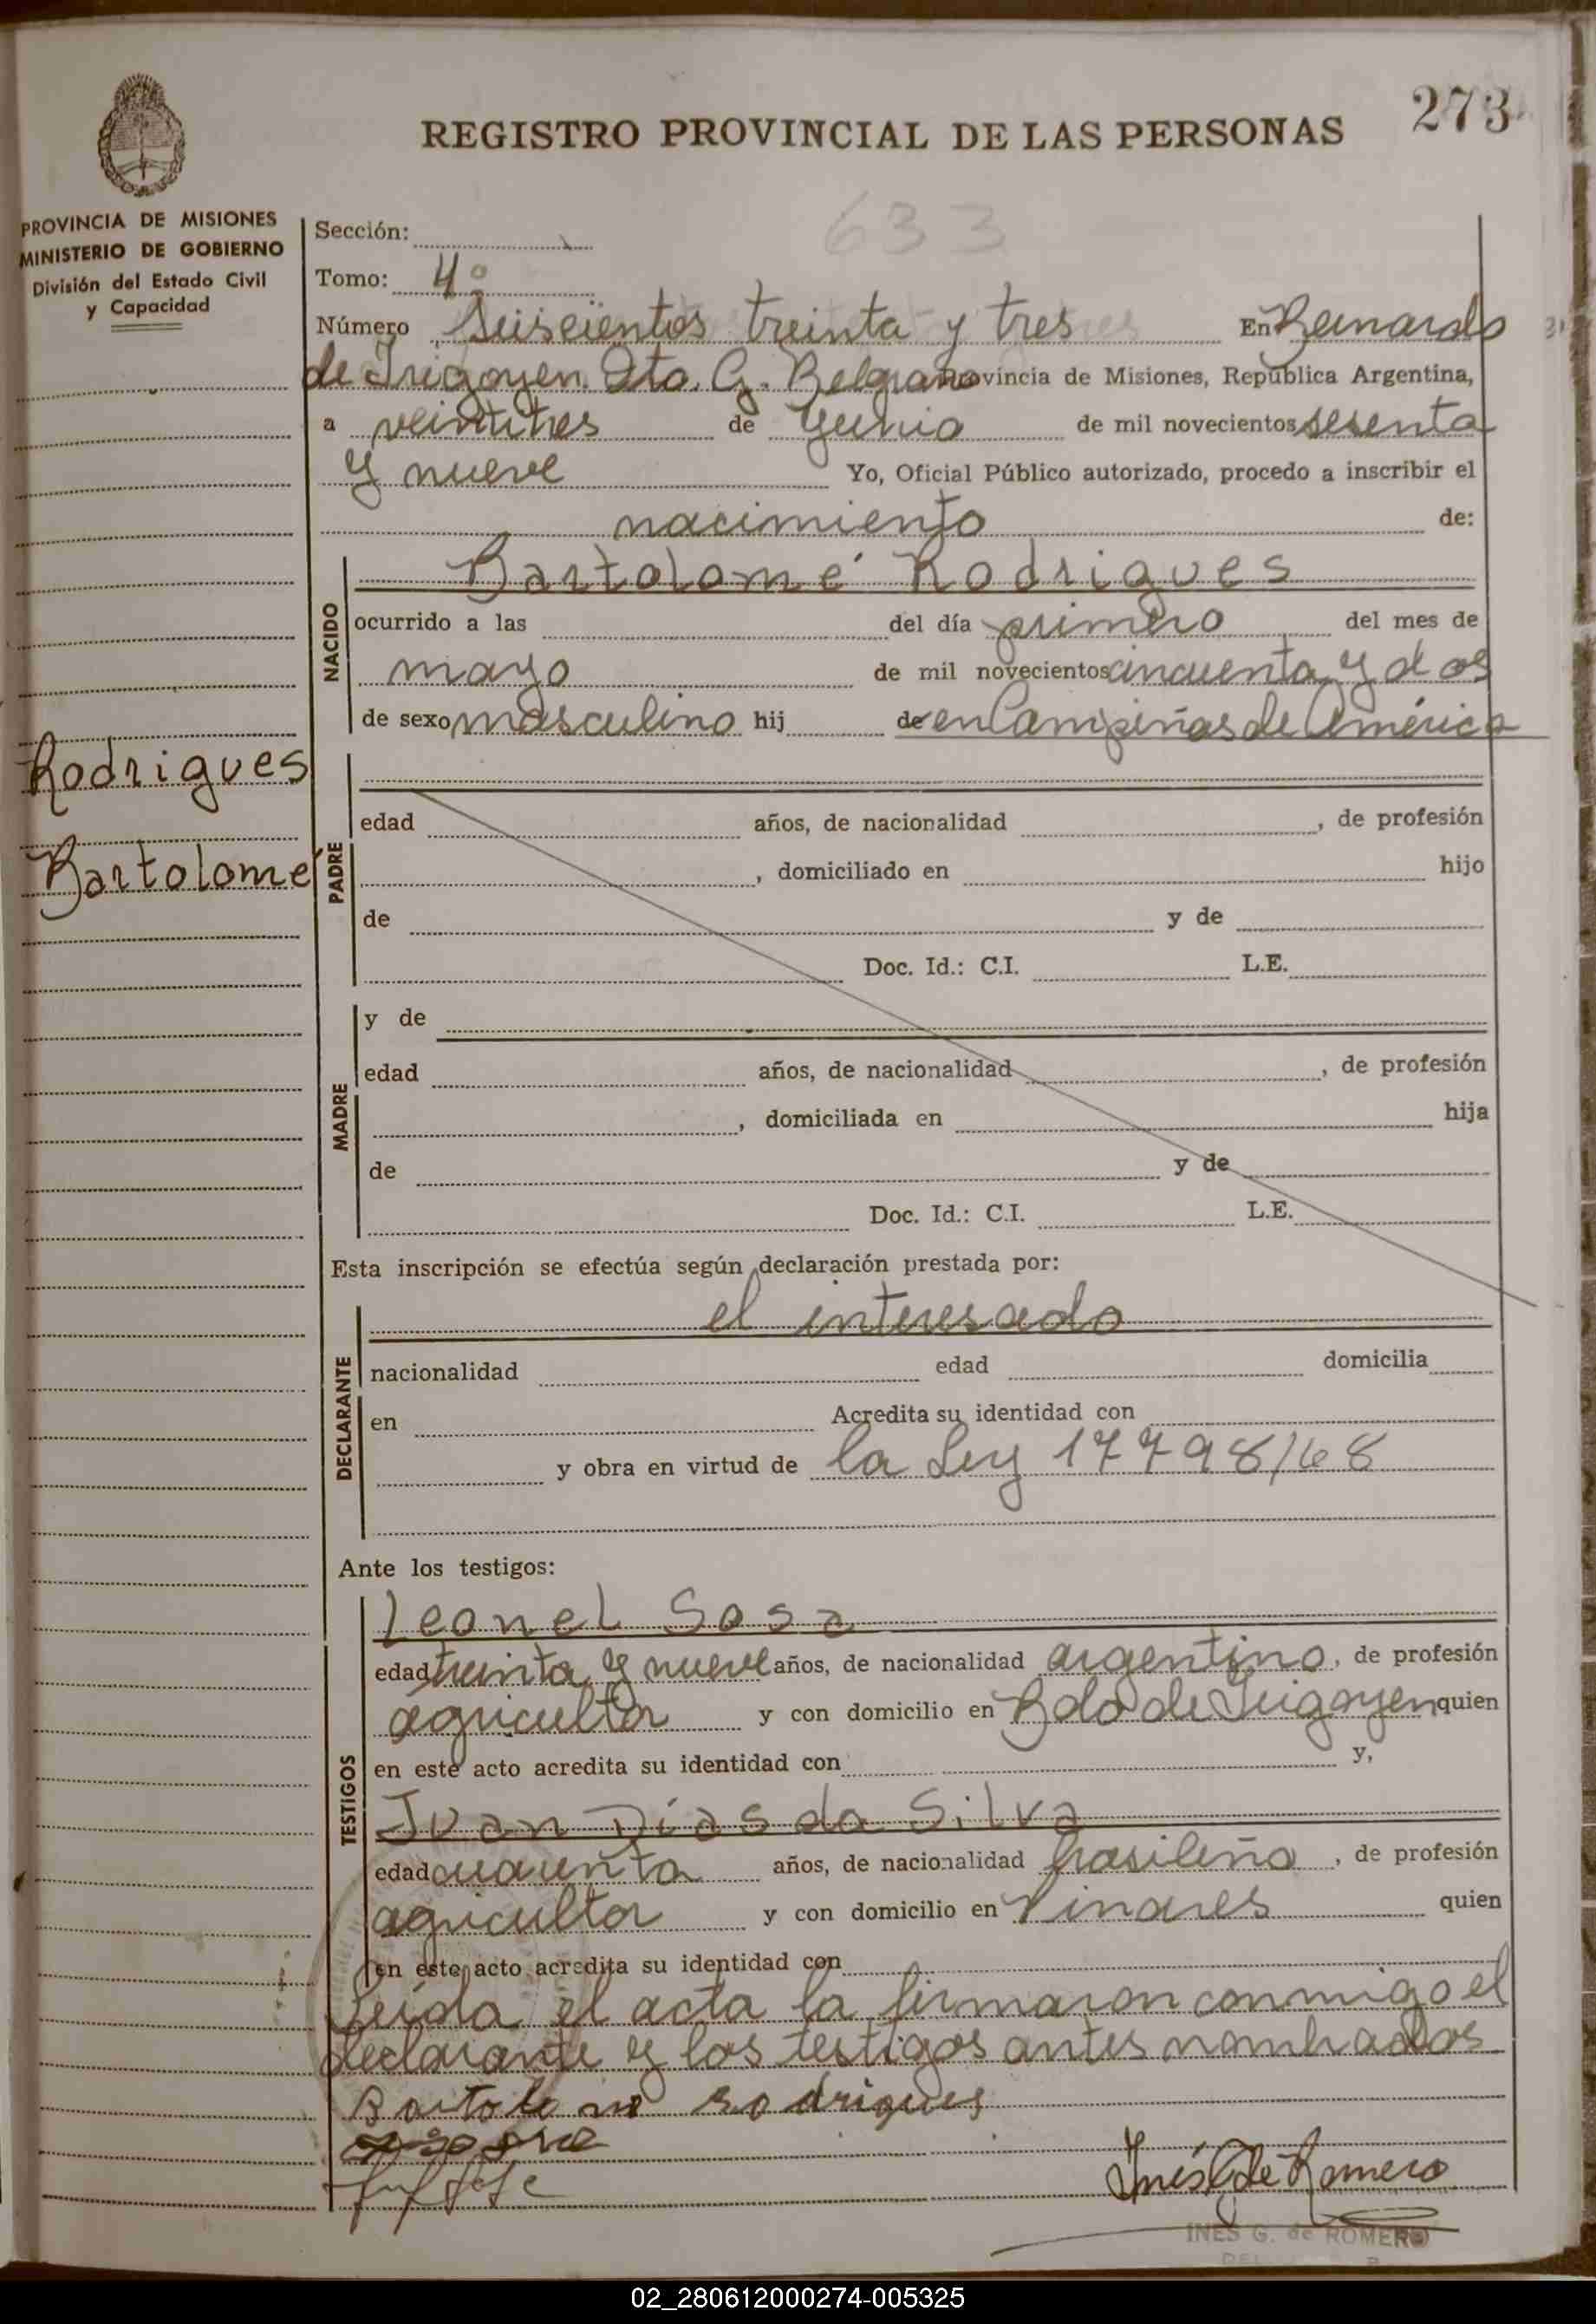 273
REGISTRO PROVINCIAL DE LAS PERSONAS
PROVINCIA DE MISIONES
MINISTERIO DE GOBIERNO
División del Estado Civil
y Capacidad
633
Sección:
Tomo: 4º
Número Seiscientos treinta y tres En Bernardo
de Irigoyen. Dto. G. Belgrano Provincia de Misiones, República Argentina,
a veintitres de Junio de mil novecientos sesenta
y nueve Yo, Oficial Público autorizado, procedo a inscribir el
nacimiento de:
NACIDO
Bartolomé Rodrigues
ocurrido a las del día primero del mes de
mayo de mil novecientos cincuenta y dos
de sexo masculino hij de en Campiñas de América
Rodrigues
Bartolomé
PADRE
edad años, de nacionalidad , de profesión
, domiciliado en hijo
de y de
Doc. Id.: C.I. L.E.
MADRE
y de
edad años, de nacionalidad , de profesión
, domiciliada en hija
de y de
Doc. Id.: C.I. L.E.
Esta inscripción se efectúa según declaración prestada por:
DECLARANTE
el interesado
nacionalidad edad domicilia
en Acredita su identidad con
y obra en virtud de la Ley 17798/68
Ante los testigos:
TESTIGOS
Leonel Sosa
edad treinta y nueve años, de nacionalidad argentino, de profesión
agricultor y con domicilio en Bdo de Irigoyen quien
en este acto acredita su identidad con y,
Juan Días da Silva
edad cuarenta años, de nacionalidad brasileño, de profesión
agricultor y con domicilio en Pinares quien
en este acto acredita su identidad con
Leída el acta la firmaron conmigo el
declarante y los testigos antes nombrados
Bartolome rodrigues
Inés G de Romero
INES G. de ROMERO
02_280612000274-005325